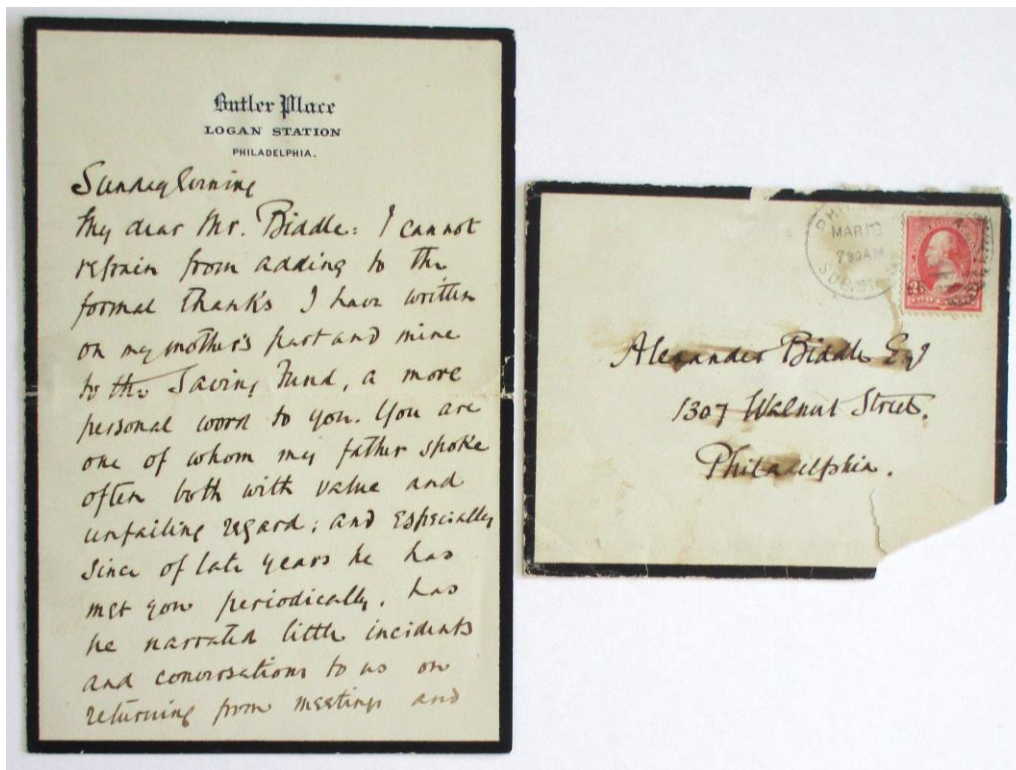 Butler Place
LOGAN STATION
PHILADELPHIA.
Sunday Evening
My dear Mr. Biddle: I cannot
refrain from adding to the
formal thanks I have written
on my mother's part and mine
to the Saving Fund, a more
personal word to you. You are
one of whom my father spoke
often both with value and
unfailing regard; and especially
since of late years he has
met you periodically, has
he narrated little incidents
and conversations to us on
returning from meetings and
MAR 13
730AM
Alexander Biddle Esq
1307 Walnut Street.
Philadelphia.